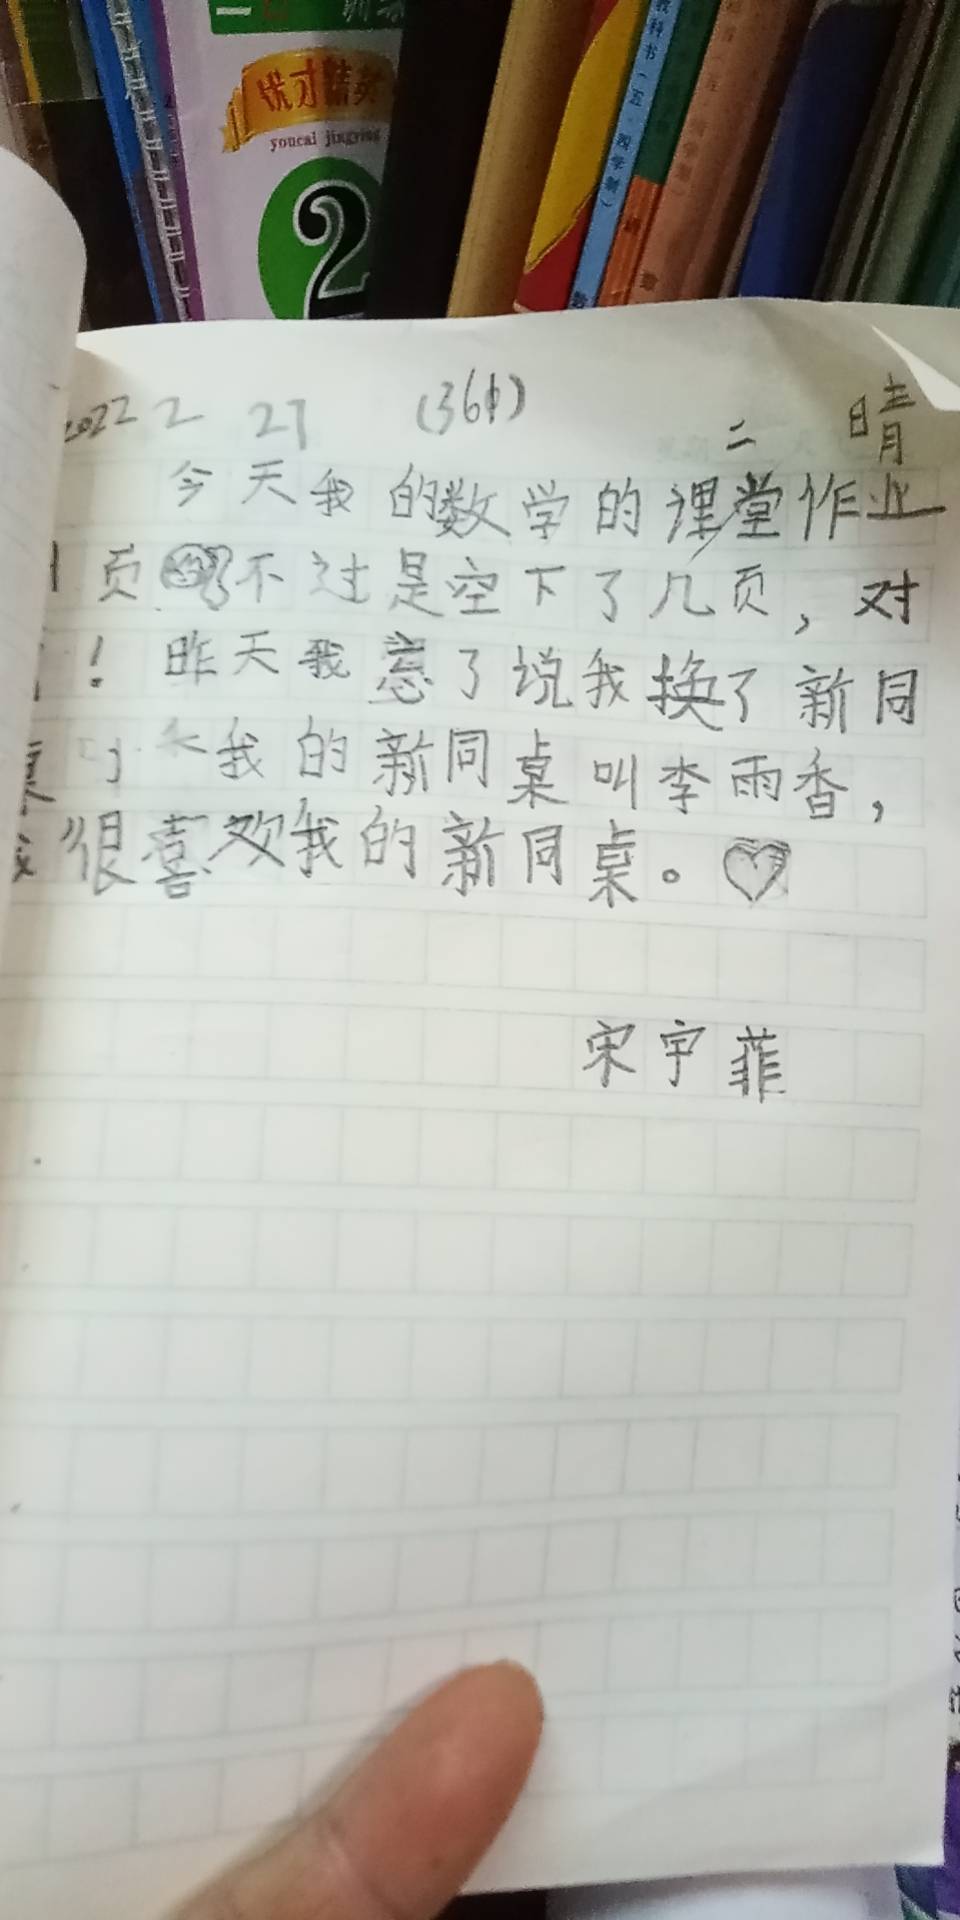 优才精英
youcai jingying
2
教科书(五·四学制)
数
2022 2 27 (36个) 二 晴
今天我的数学的课堂作业
页不过是空下了几页，对
！昨天我忘了说我换了新同
我的新同桌叫李雨香，
我很喜欢我的新同桌。
宋宇菲